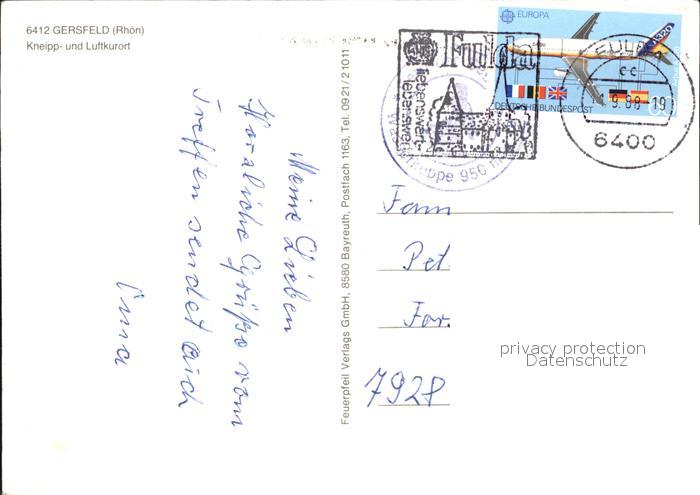 6412 GERSFELD (Rhön)
Kneipp- und Luftkurort
Meine Lieben
Herzliche Grüße vom
Treffen sendet Euch
Feuerpfeil Verlags GmbH, 8580 Bayreuth, Postfach 1163, Tel. 0921/21011
EUROPA
DEUTSCHE BUNDESPOST
Fulda
liebenswert-
lebenswert
FULDA
cc
9.88.-19
6400
kuppe 950 m
Fam
Pet
For.
7928
privacy protection
Datenschutz